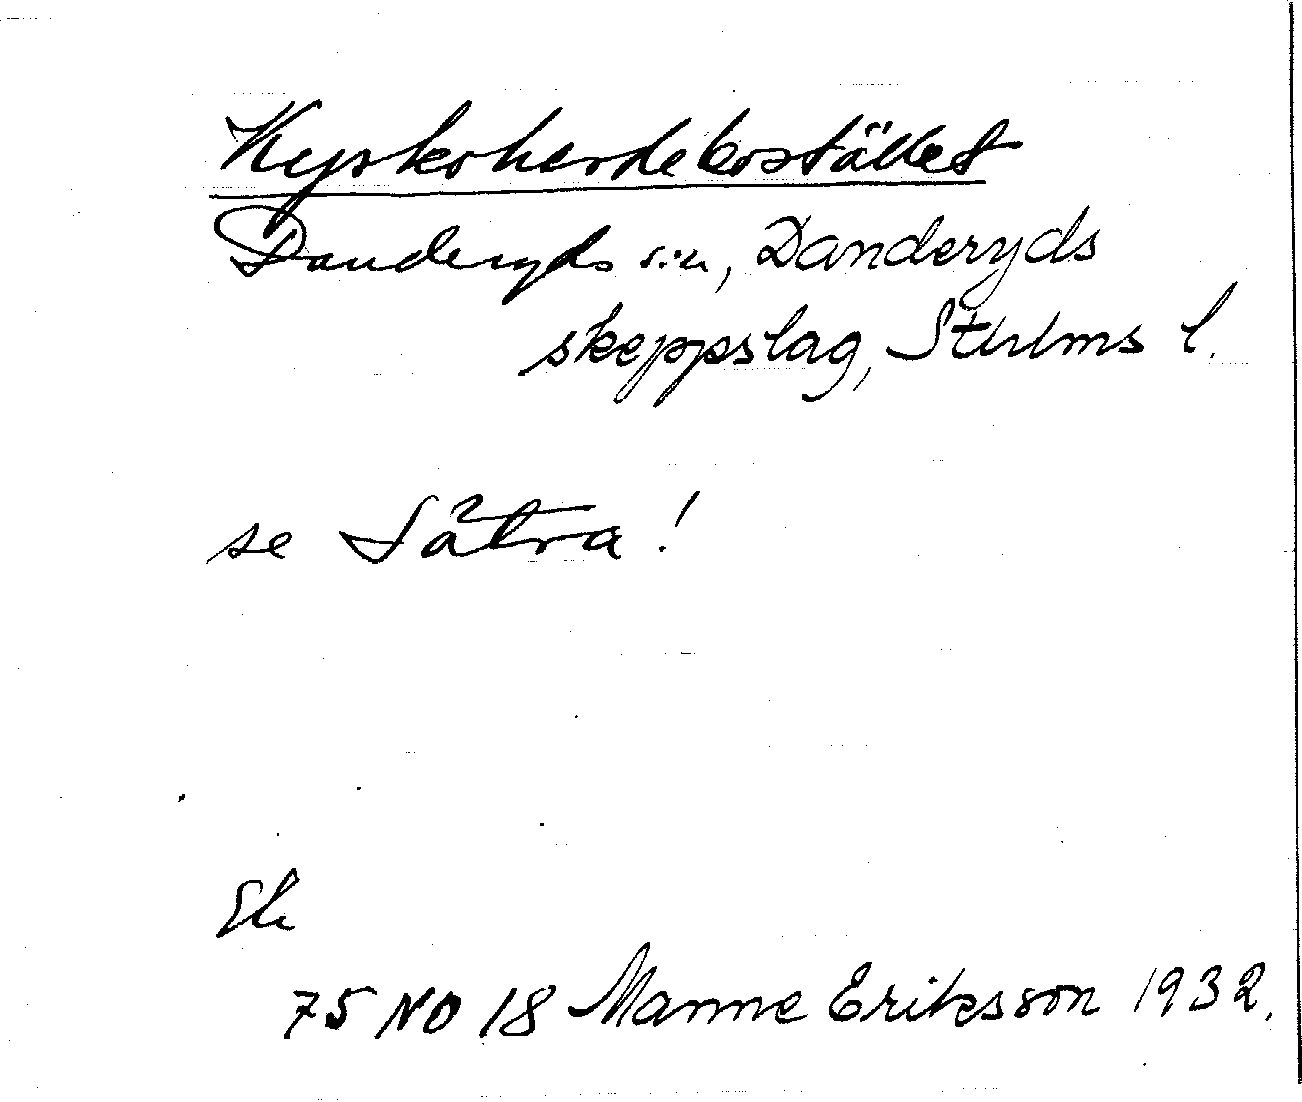 Kyrkoherdebostället
Danderyds s:n, Danderyds
skeppslag, Sthlms l.
se Sätra!
Ek
75 NO 18 Manne Eriksson 1932.